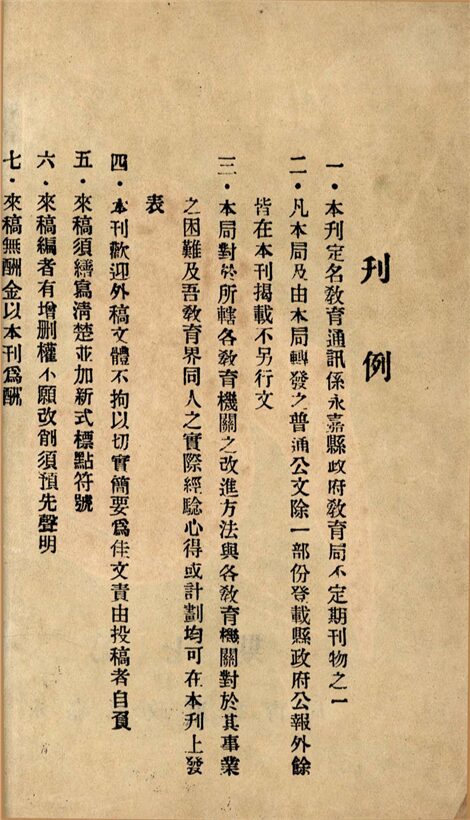 刊例
一．本刋定名敎育通訊係永嘉縣政府敎育局不定期刊物之一
二．凡本局及由本局轉發之普通公文除一部份登載縣政府公報外餘
皆在本刋揭載不另行文
三．本局對於所轄各敎育機關之改進方法與各敎育機關對於其事業
之困難及吾敎育界同人之實際經驗心得或計劃均可在本刋上發
表
四．本刋歡迎外稿文體不拘以切實簡要爲佳文責由投稿者自負
五．來稿須繕寫淸楚並加新式標點符號
六．來稿編者有增删權不願改削須預先聲明
七．來稿無酬金以本刋爲酬